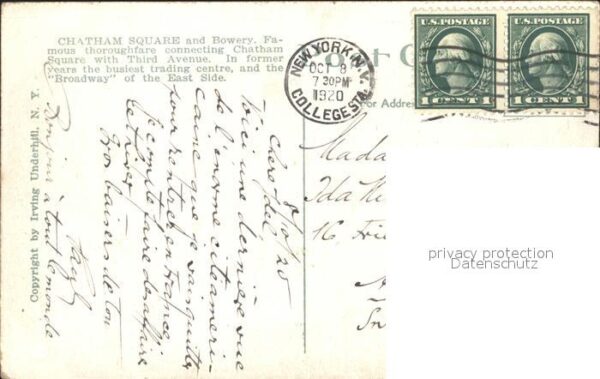 CHATHAM SQUARE and Bowery. Fa-
mous thoroughfare connecting Chatham
Square with Third Avenue. In former
years the busiest trading centre, and the
"Broadway" of the East Side.
Copyright by Irving Underhill, N. Y.
NEW YORK, N.Y.
OCT 8
7 30PM
1920
COLLEGE STA.
U.S. POSTAGE
1 CENT 1
U.S. POSTAGE
1 CENT 1
For Address
8/10/20
Voici une dernière vue
de l'énorme cité améri-
caine que je vais quitter
pour rentrer en France
Je compte faire
Gros baisers de ton
Bonjour à tout le monde
Mada
Ida
16
privacy protection
Datenschutz